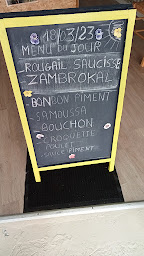 18/03/23
MENU DU JOUR
ROUGAIL SAUCISSE
- ZAMBROKAL
- BONBON PIMENT
- SAMOUSSA
- BOUCHON
- CROQUETTE
POULET
- SAUCE PIMENT